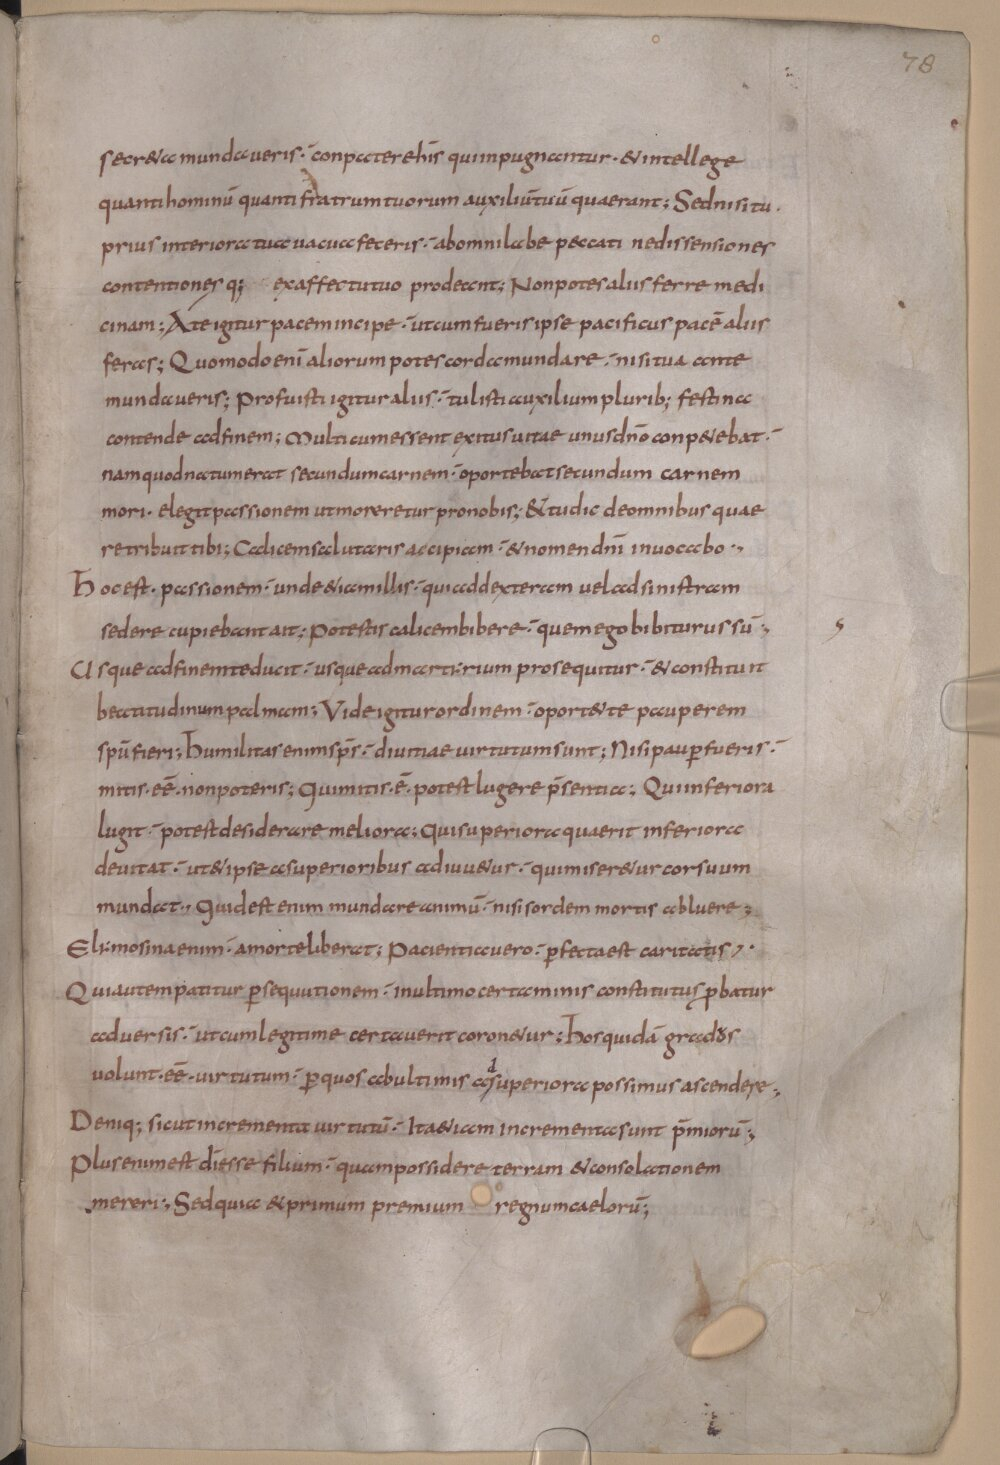 78
secretamundaueris·̄ conpaterehis̄ quiinpugnantur· &intellege
quantihominū quanti fratrumtuorum auxiliūtuū quaerant; Sednisitu·
prius interioratua uacuafeceris·̄ abomnilabe peccati nedissensiones
contentionesq; exaffectutuo prodeant; Nonpotesaliisferre medi
cinam; Ateigitur pacemincipe·̄ utcumfuerisipse pacificus pacē aliis
feras; Quomodo enī aliorum potescordamundare·̄ nisitua ante
mundaueris; Profuisti igituraliis·̄ tulistiauxiliumplurib; festina
contende adfinem; Multicumessent exitusuitae unusdn̄oconpetebat·̄
namquodnatumerat secundumcarnem·̄ oportebatsecundum carnem
mori· elegitpassionem utmoreretur pronobis; &tudic deomnibus quae
retribuit tibi; Calicemsalutaris accipiam·̄ &nomendnī inuocabo·,
Hocest· passionem·̄ unde&iamillis·̄ quiaddexteram ueladsinistram
sedere cupiebantait; Potestis calicembibere·̄ quemegobibiturussū;
Usque adfinemteducit·̄ usque admartyrium prosequitur·̄ &constituit
beatitudinumpalmam; Videigiturordinem·̄ oport&te pauperem
spū fieri; Humilitasenimsps̄·̄ diuitiae uirtutumsunt; Nisipaup̄fueris·̄
mitis·eē·nonpoteris; Quimitis·ē·potestlugere p̄sentia; Quiinferiora
lugit·̄ potestdesiderare meliora; Quisuperioraquaerit inferiora
deuitat·̄ ut&ipse asuperioribus adiuu&ur·̄ quimiser&ur corsuum
mundat·, Quidestenim mundareanimū·̄ nisisordem mortis abluere;
Elymosinaenim·̄ amorteliberat; Pacientiauero·̄ p̄fectaest caritatis,·
Quiautempatitur p̄sequutionem·̄ inultimocertaminis constitutus p̄batur
aduersis·̄ utcumlegitime certauerit coron&ur; Hosquidā grad8s
uolunt·eē·uirtutum·̄ p̄quos abultimis adsuperiora possimus ascendere;
Deniq; sicutincrementa uirtutū·̄ Ita&iam incrementasunt p̄miorū;
Plusenimest dīesse filium·̄ quampossidere terram &consolationem
mereri; Sedquia &primum premium regnumcaelorū;